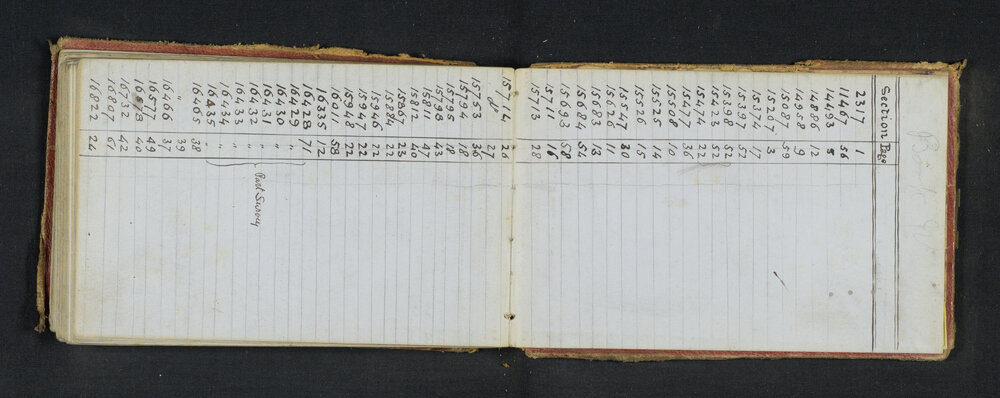 Section Page
2317 1
11467 56
14493 5
14886 12
14958 9
15087 59
15207 3
15274 17
15397 57
15398 52
15423 52
15474 22
15477 36
15508 10
15525 14
15526 15
15547 30
15626 11
15683 13
15684 54
15693 58
15711 16
15713 28
15714 26
" 27
15753 36
15794 18
15795 18
15798 43
15811 47
15812 40
15867 23
15884 22
15946 22
15947 22
15948 22
16011 58
16335 12
16428 71
16429 "
16430 "
16431 "
16432 "
16433 "
16434 "
16435 "
Part Survey
16465 38
" 39
16466 37
16571 49
40
16732 42
16807 67
16822 24